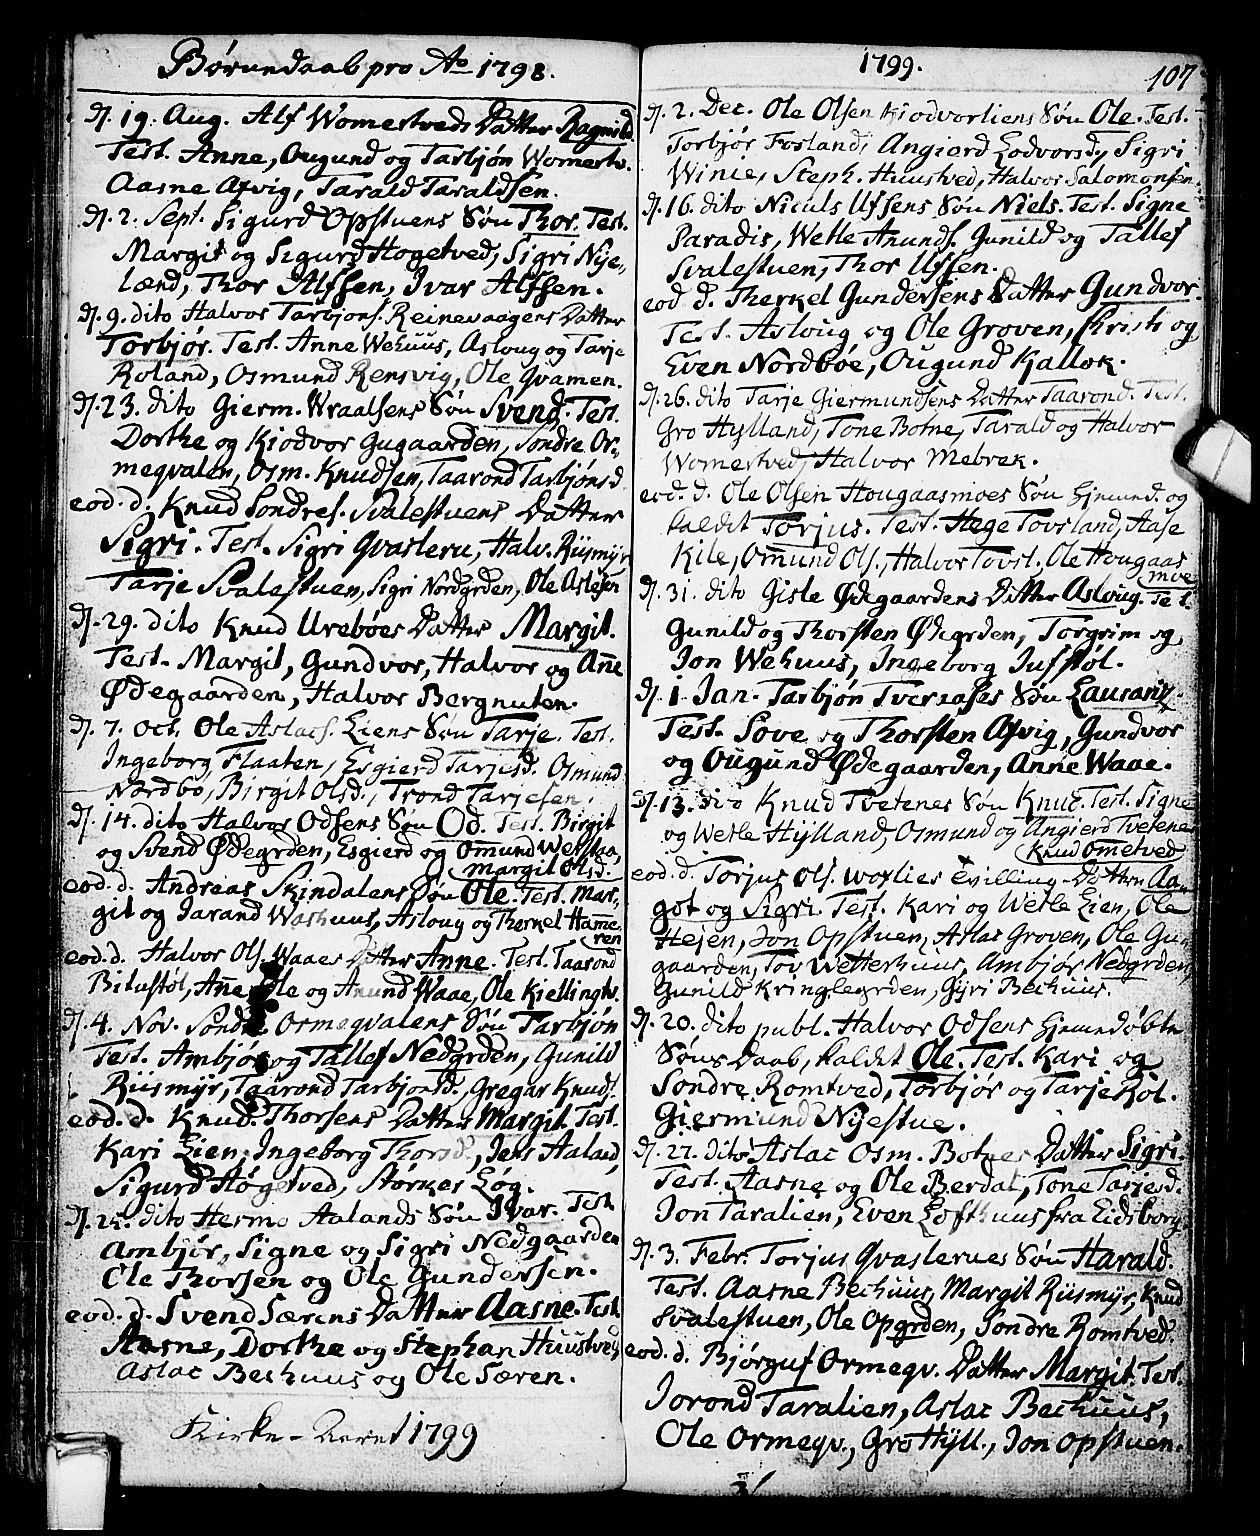 Børnedaab pro Ao 1798.
D. 19. Aug. Alf Womestveds Datter Ragnild.
Test. Anne, Ougund og Tarbjøn Womestv.
Aasne Afvig, Tarald Taraldsen.
D. 2. Sept. Sigurd Opstuens Søn Thor. Test.
Margit og Sigurd Høgetved, Sigri Nye-
lænd, Thor Alfssen, Ivar Alfssen.
D. 9. dito Halvor Tarbjons. Reinevaagens Datter
Torbjør. Test. Anne Wehuus, Asloug og Tarje
Roland, Osmund Rensvig, Ole Qvamen.
D. 23. dito Gierm. Wraalsens Søn Svend. Test.
Dorthe og Kiodvor Gugaarden, Sondre Or-
meqvalen, Osm. Knudsen, Taarond Tarbjønsd
eod. d. Knud Sondres. Svalestuens Datter
Sigri. Test. Sigri Qvasleru, Halv. Riismyr
Tarje Svalestuen, Sigri Nordgrden, Ole Aslesen
D. 29. dito Knud Urebøes Datter Margit.
Test. Margit, Gundvor, Halvor og Anne
Ødegaarden, Halvor Bergnuten.
D. 7. Oct. Ole Aslacs. Liens Søn Tarje. Test.
Ingeborg Flaaten, Esgierd Tarjesd. Osmund
Nordbø, Birgit Olsd., Trond Tarjesen.
D. 14. dito Halvor Odsens Søn Od. Test. Birgit
og Svend Ødegrden, Esgierd og Omund Wefstaa,
Margit Olsd.
eod. d. Andreas Skindalens Søn Ole. Test. Mar-
git og Jarand Washuus, Asloug og Therkel Hame-
ren
eod. d. Halvor Ols. Waaes Datter Anne. Test. Taarond
Bitustøl, Anne, Ole og Anund Waae, Ole Kiellingtv.
D. 4. Nov. Sondre Ormeqvalens Søn Tarbjøn
Test. Ambjør og Tallef Nedgrden, Gunild
Riismyr, Taarond Tarbjonsd., Gregar Knuds.
eod. d. Knud Thorsens Datter Margit. Test.
Kari Lien, Ingeborg Thorsd., Jens Aaland,
Sigurd Høgetved, Størker Løg.
D. 25. dito Hermo Aalands Søn Ivar. Test.
Ambjør, Signe og Sigri Nedgaarden
Ole Thorsen og Ole Gundersen.
eod. d. Svend Særens Datter Aasne. Test.
Aasne, Dorthe og Stephan Huustved,
Aslac Bechuus og Ole Særen.
Kirke-Aaret 1799
1799.
107
D. 2. Dec. Ole Olsen Kiodvorliens Søn Ole. Test.
Torbjør Fosland, Angierd Lodvorsd, Sigri
Winie, Steph. Huustved, Halvor Salomonsen.
D. 16. dito Niculs Ulfsens Søn Niels. Test. Signe
Paradis, Wetle Anunds. Gunild og Tallef
Svalestuen, Thor Ulfsen.
eod. d. Therkel Gundersens Datter Gundvor.
Test. Asloug og Ole Groven, Kristi og
Even Nordboe, Ougund Kallok.
D. 26. dito Tarje Giermundsens Datter Taarond. Test.
Gro Hylland, Tone Botne, Tarald og Halvor
Womestved, Halvor Mebrek.
eod. d. Ole Olsen Hougaasmoes Søn hjemd. og
kaldet Torjus. Test. Hege Tovsland, Aase
Kile, Omund Ols., Halvor Tovsl., Ole Hougaas
moe
D. 31. dito Gisle Ødegaardens Datter Asloug. Test.
Gunild og Thorsten Ødegrden, Torgrim og
Jon Wehuus, Ingeborg Jufstøl.
D. 1. Jan. Tarbjøn Tveraases Søn Lauranz.
Test. Love og Thorsten Afvig, Gundvor
og Ougund Ødegaarden, Anne Waae.
D. 13. dito Knud Tvetenes Søn Knut. Test. Signe
og Wetle Hylland, Osmund og Angierd Tvetene
Knud Ometved
eod. d. Torjus Ols. Woxlies Tvilling-Døttre Aa-
got og Sigri. Test. Kari og Wetle Lien, Ole
Hejen, Jon Opstuen, Aslac Groven, Ole Gu-
gaarden, Tov Wetterhuus, Ambjør Nedgrden,
Gunild Kringlegrden, Gyri Bechuus.
D. 20. dito publ. Halvor Odsens hjemdøbte
Søns Daab, kaldet Ole. Test. Kari og
Sondre Romtved, Torbjør og Tarje Høl.
Giermund Nyestue.
D. 27. dito Aslac Osm. Botnes Datter Sigri.
Test. Aasne og Ole Berdal, Tone Tarjesd.
Jon Taralien, Even Lofthuus fra Eidsborg.
D. 3. Febr. Torjus Qvaslerues Søn Harald.
Test. Aasne Bechuus, Margit Riismyr, Knud
Svalestuen, Ole Opgrden, Sondre Romtved.
eod. d. Bjørguf Ormeqv. Datter Margit. Test.
Jorond Taralien, Aslac Bechuus,
Ole Ormeqv., Gro Hyll., Jon Opstuen.